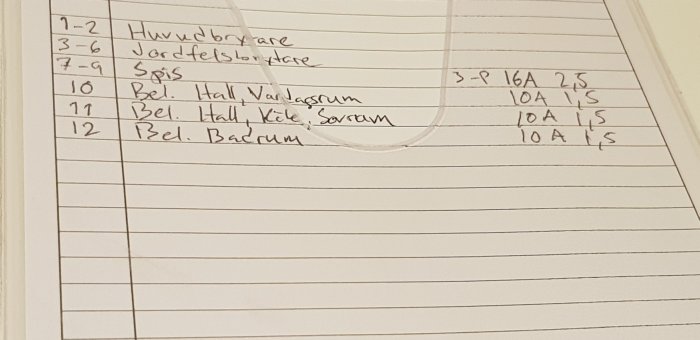 1-2 Huvudbrytare
3-6 Jordfelsbrytare
7-9 Spis 3-P 16A 2,5
10 Bel. Hall, Vardagsrum 10A 1,5
11 Bel. Hall, Kök, Sovrum 10A 1,5
12 Bel. Badrum 10A 1,5